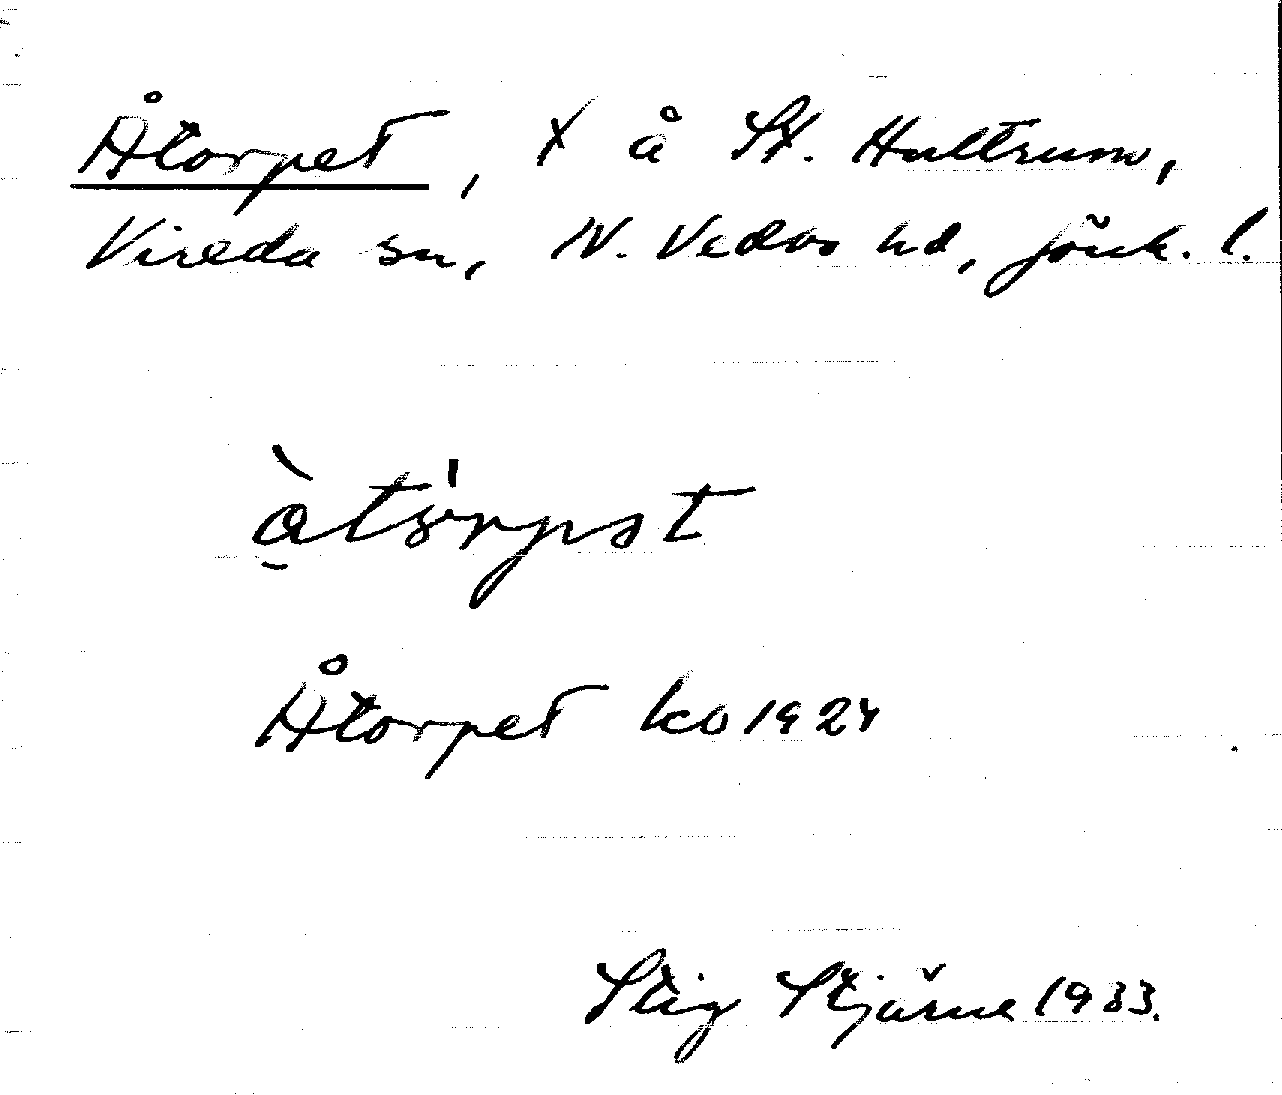 Åtorpet, x å St. Hultrum,
Vireda sn, N. Vedbo hd, Jönk. l.
Åtorpet ko 1924
Stig Stjärne 1933.